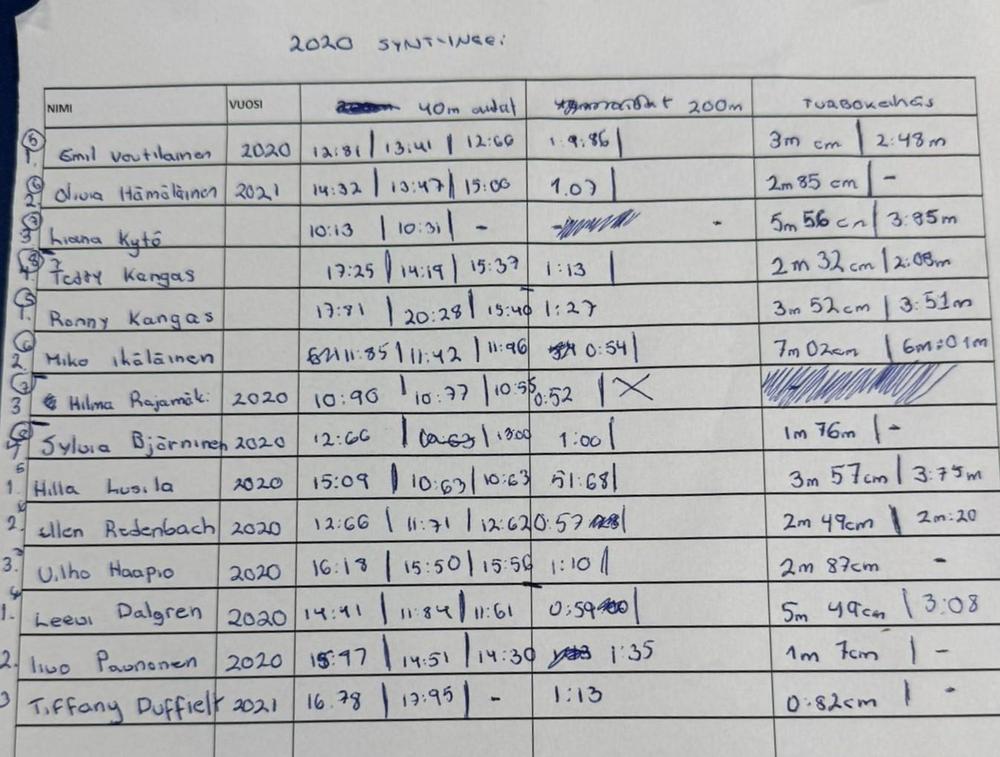 2020 SYNT.
NIMI VUOSI 40m aidat 200m TURBOKEIHÄS
5 1. Emil Voutilainen 2020 12:81 | 13:41 | 12:66 1:9:86 | 3m cm | 2:48m
6 2. Olivia Hämäläinen 2021 14:32 | 13:47 | 15:06 1.07 | 2m 85 cm | -
7 3 Liana Kytö 10:13 | 10:31 | - - 5m 56 cm | 3:85m
8 4. Teddy Kangas 17:25 | 14:19 | 15:37 1:13 | 2 m 32 cm | 2:08m
5 1. Ronny Kangas 17:81 | 20:28 | 15:40 1:27 3m 52cm | 3:51m
6 2. Miko Ikäläinen 11:85 | 11:42 | 11:96 0:54 | 7m 02cm | 6m:01m
7 3 Hilma Rajamäki 2020 10:96 | 10:77 | 10:55 0:52 | X
8 4 Sylvia Björninen 2020 12:66 | | 13:00 1:00 | 1m 76m | -
5 1. Hilla Lusila 2020 15:09 | 10:63 | 10:63 51:68 | 3m 57cm | 3:75m
2. Ellen Redenbach 2020 12:66 | 11:71 | 12:62 0:57 | 2m 49cm | 2m:20
3. Vilho Haapio 2020 16:18 | 15:50 | 15:56 1:10 | 2m 87cm -
1. Leevi Dalgren 2020 14:41 | 11:84 | 11:61 0:59 | 5m 49cm | 3:08
2. Iivo Paunonen 2020 15:97 | 14:51 | 14:30 1:35 1m 7cm | -
3 Tiffany Duffielt 2021 16.78 | 17:95 | - 1:13 0:82cm | -